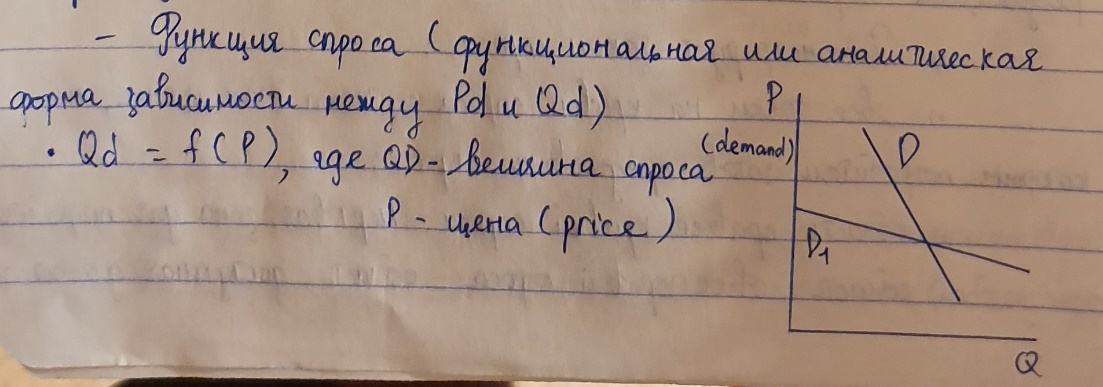 - Функция спроса (функциональная или аналитическая
форма зависимости между Pd и Qd)
• Qd = f(P), где QD - величина спроса (demand)
P - цена (price)
P
D
D1
Q